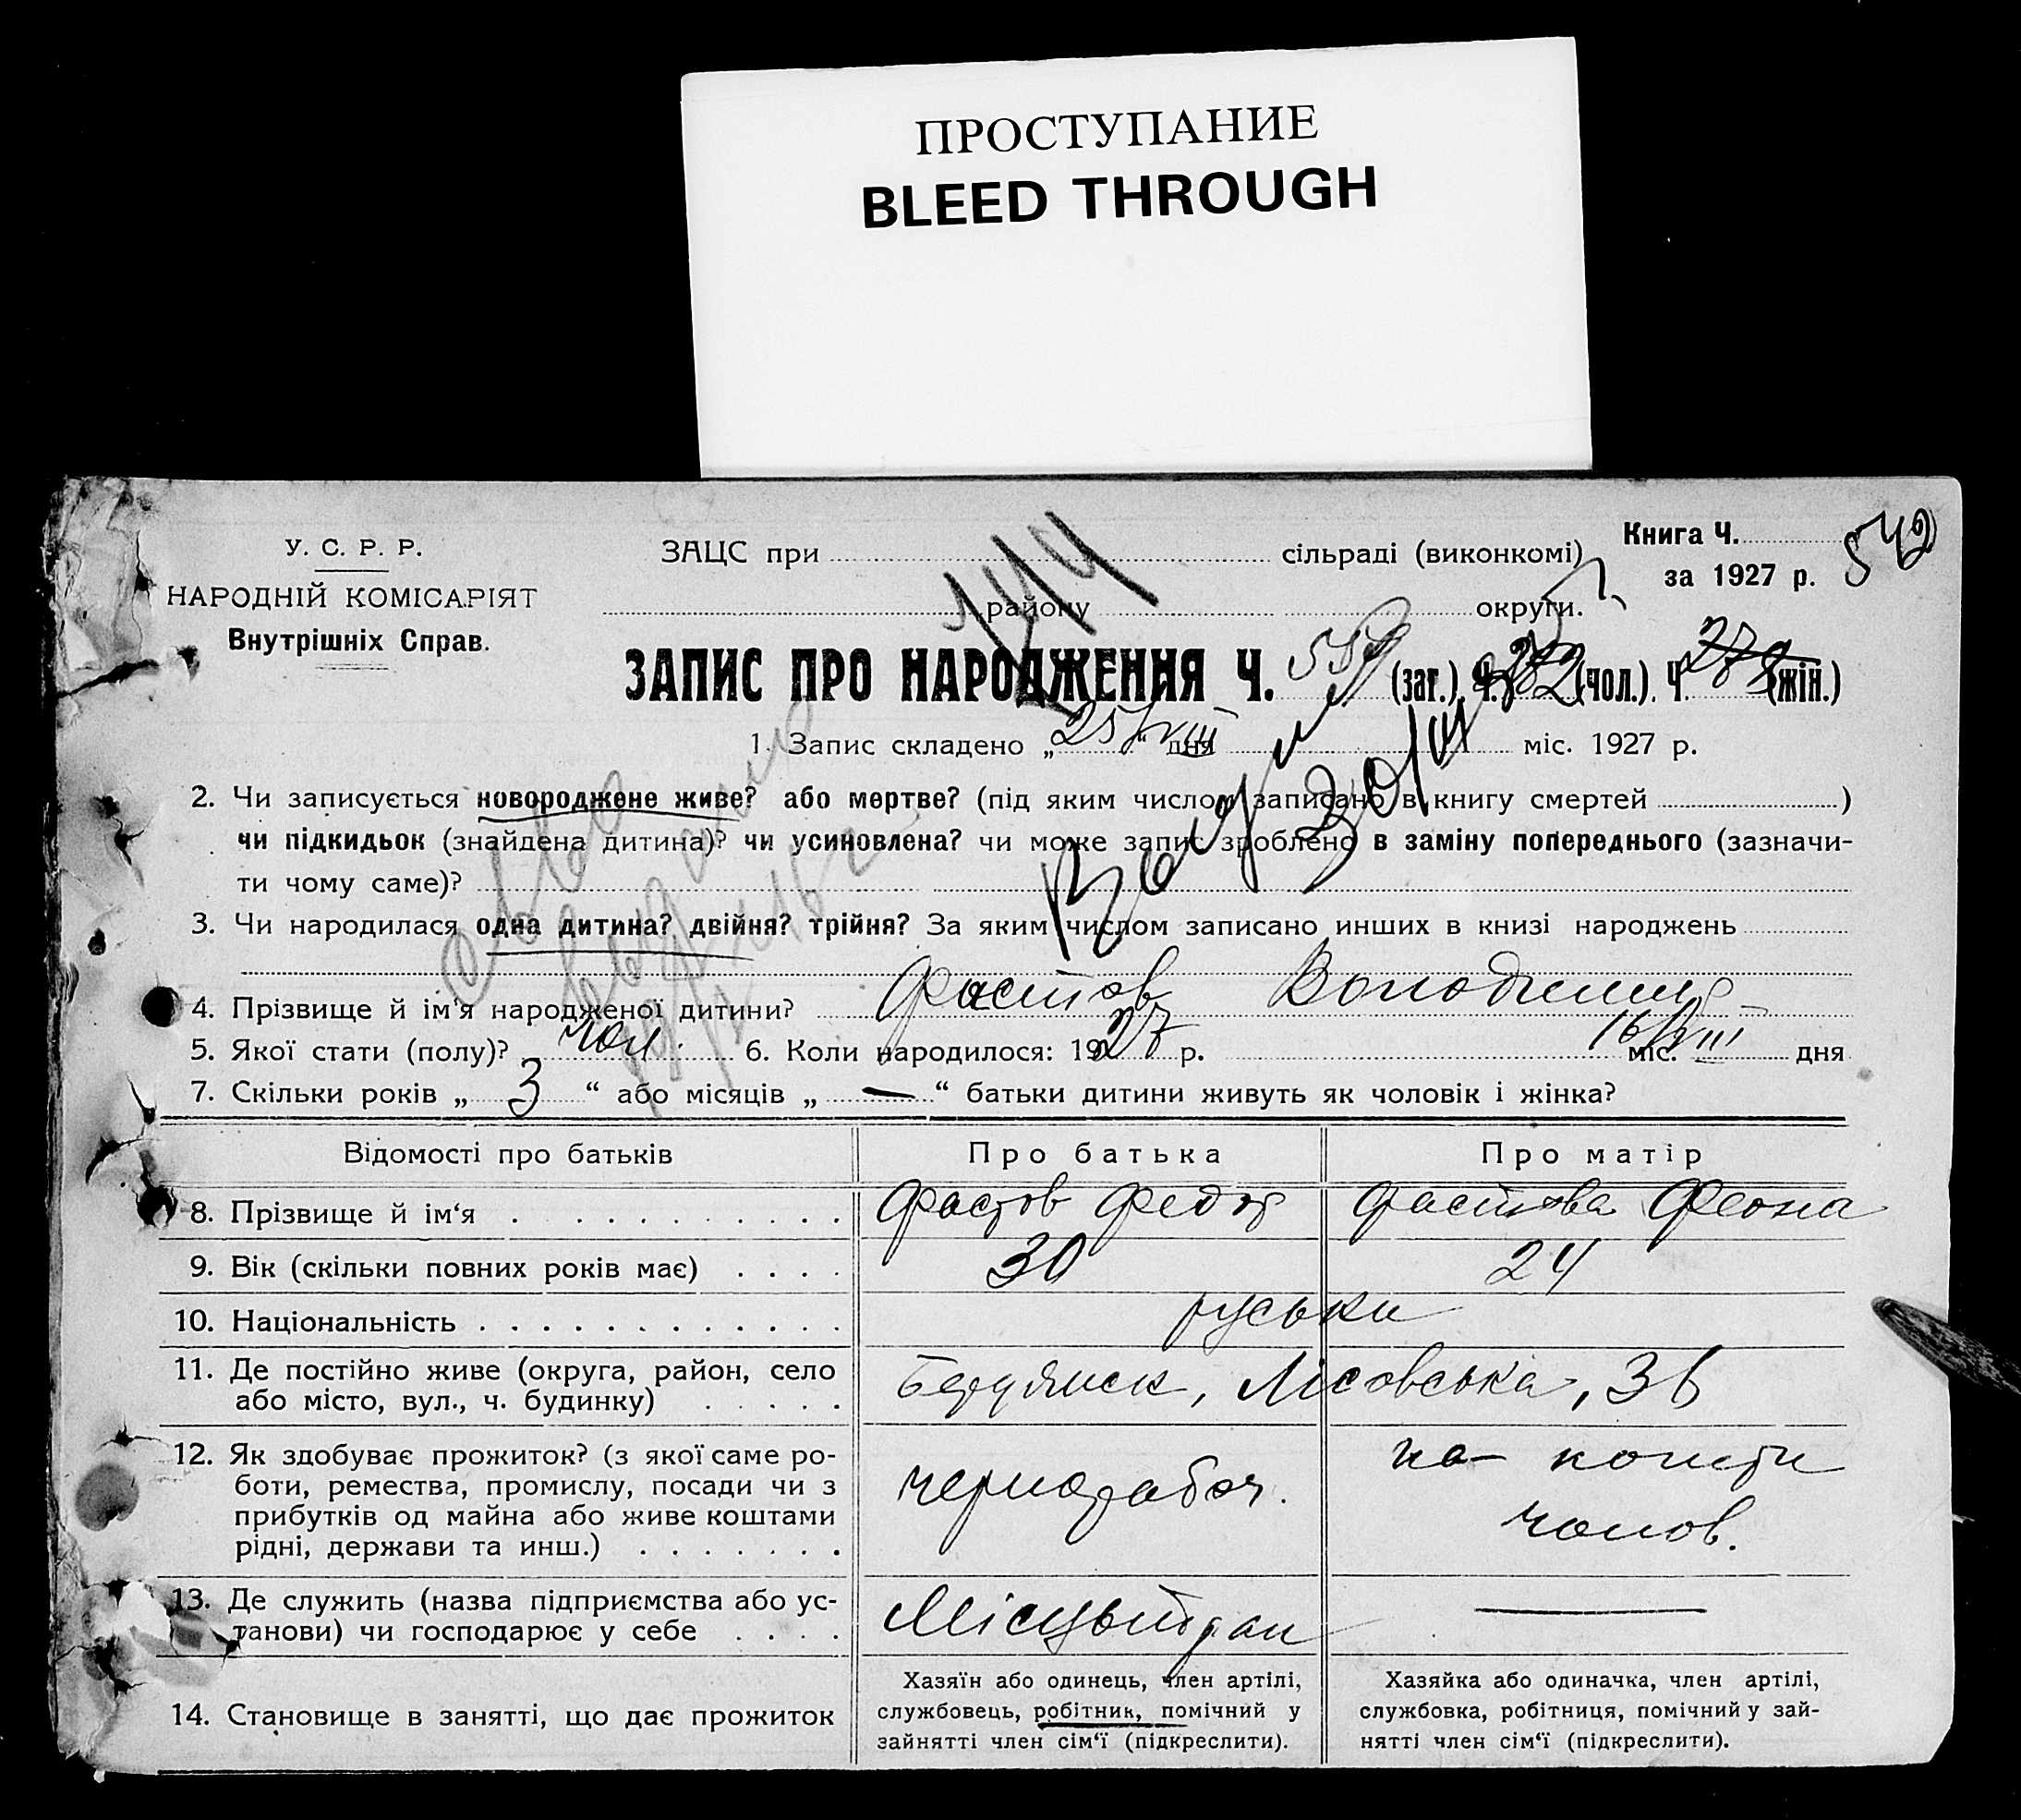 ПРОСТУПАНИЕ
BLEED THROUGH
У. С. Р. Р.
НАРОДНІЙ КОМІСАРІЯТ
Внутрішніх Справ.
ЗАЦС при сільраді (виконкомі)
району округи.
Книга Ч.
за 1927 р.
542
144
ЗАПИС ПРО НАРОДЖЕННЯ Ч. (заг.). Ч. (чол.). Ч. (жін.)
1. Запис складено „25/VIII“ дня міс. 1927 р.
2. Чи записується новороджене живе? або мертве? (під яким числом записано в книгу смертей )
чи підкидьок (знайдена дитина)? чи усиновлена? чи може запис зроблено в заміну попереднього (зазначи-
ти чому саме)?
3. Чи народилася одна дитина? двійня? трійня? За яким числом записано инших в книзі народжень
4. Прізвище й ім'я народженої дитини? Фастов Володимир
5. Якої стати (полу)? чол. 6. Коли народилося: 1927 р. 16/VIII міс. дня
7. Скільки років „ 3 “ або місяців „ — “ батьки дитини живуть як чоловік і жінка?
Відомості про батьків Про батька Про матір
8. Прізвище й ім'я Фастов Федор Фастова Феона
9. Вік (скільки повних років має) 30 24
10. Національність руськи
11. Де постійно живе (округа, район, село
або місто, вул., ч. будинку) Бердянск, Лісовська, 36
12. Як здобуває прожиток? (з якої саме ро-
боти, ремества, промислу, посади чи з
прибутків од майна або живе коштами
рідні, держави та инш.) чернорабоч. на кошти
чолов.
13. Де служить (назва підприємства або ус-
танови) чи господарює у себе Місцьтран —
14. Становище в занятті, що дає прожиток
Хазяїн або одинець, член артілі,
службовець, робітник, помічний у
зайнятті член сім'ї (підкреслити).
Хазяйка або одиначка, член артілі,
службовка, робітниця, помічний у зай-
нятті член сім'ї (підкреслити).